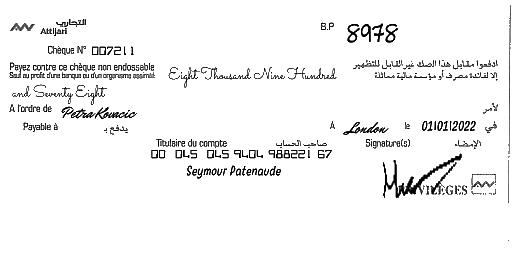 التجاري
Attijari
B.P 8978
Chèque N° 007211
Payez contre ce chèque non endossable
Sauf au profit d'une banque ou d'un organisme assimilé
Eight Thousand Nine Hundred
ادفعوا مقابل هذا الصك غير القابل للتظهير
إلا لفائدة مصرف أو مؤسسة مالية مماثلة
and Seventy Eight
A l'ordre de Petra Kovacic
لأمر
Payable à يدفع بـ
A London le 01/01/2022 في
Titulaire du compte صاحب الحساب
Signature(s) الإمضاء
00 045 045 9404 988221 67
Seymour Patenaude
PRIVILÈGES